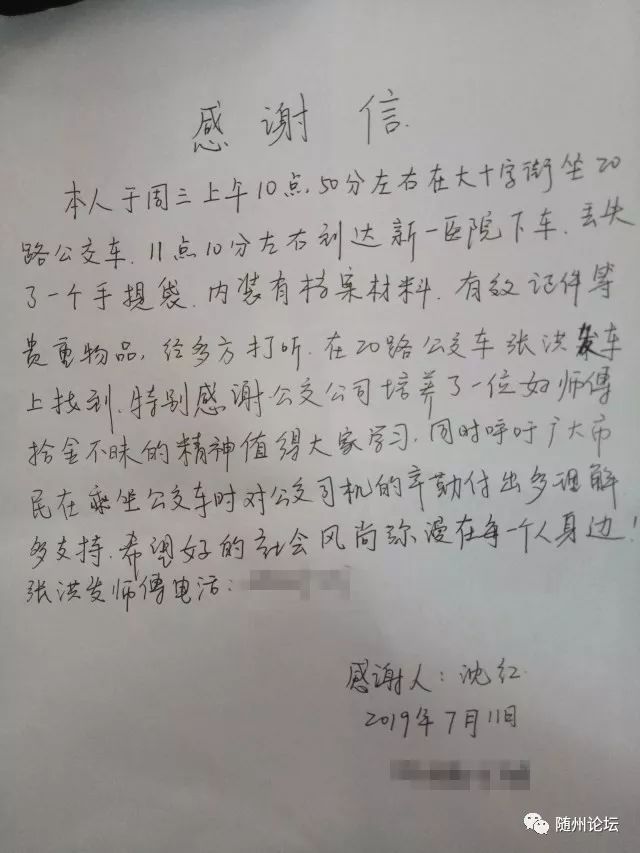 感谢信.
本人于周三上午10点,50分左右在大十字街坐20
路公交车.11点10分左右到达新一医院下车.丢失
了一个手提袋.内装有档案材料.有效证件等
贵重物品,经多方打听.在20路公交车张洪发车
上找到.特别感谢公交公司培养了一位好师傅
拾金不昧的精神值得大家学习.同时呼吁广大市
民在乘坐公交车时对公交司机的辛勤付出多理解
多支持.希望好的社会风尚弥漫在每一个人身边!
张洪发师傅电话:
感谢人:沈红.
2019年7月11日
随州论坛